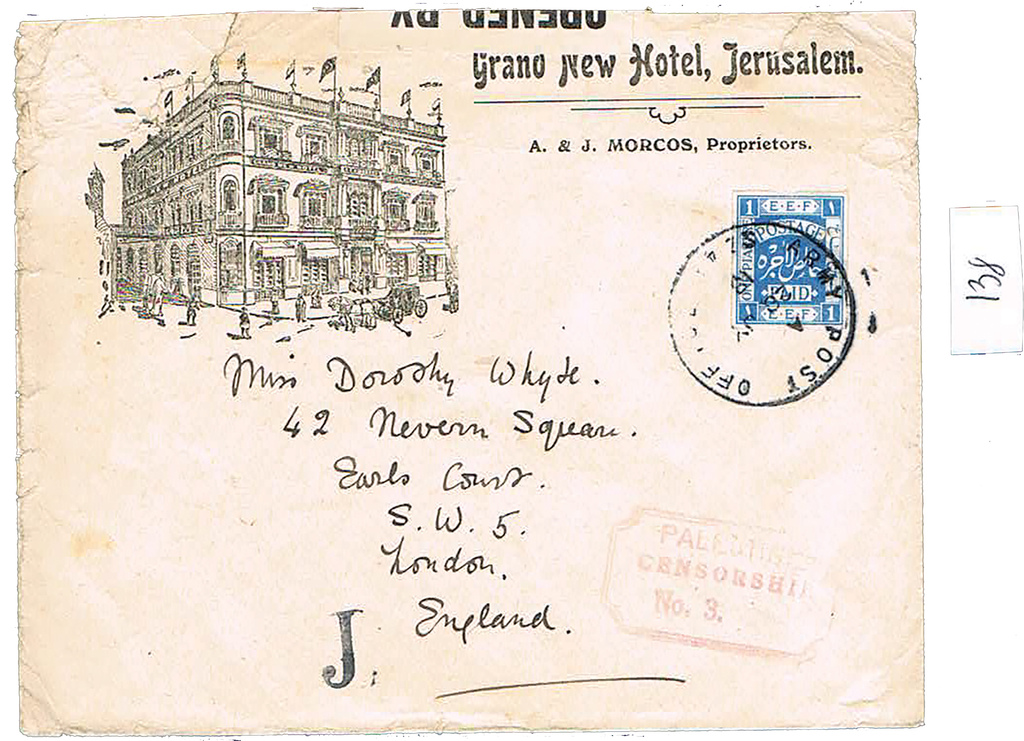 OPENED BY
Grand New Hotel, Jerusalem.
A. & J. MORCOS, Proprietors.
1 E.E.F. ١
POSTAGE
خالص الاجرة
PAID
1 E.E.F. 1
ARMY POST OFFICE
Miss Dorothy Whyte.
42 Nevern Square.
Earls Court.
S.W. 5.
London.
England.
PALESTINE
CENSORSHIP
No. 3.
J.